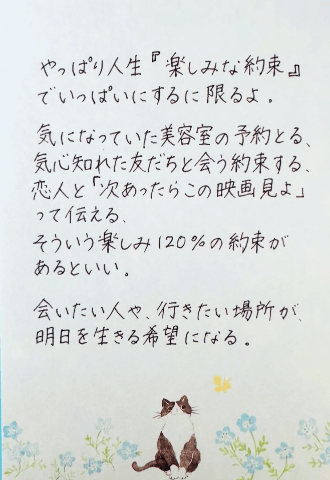 やっぱり人生『楽しみな約束』
でいっぱいにするに限るよ。
気になっていた美容室の予約とる、
気心知れた友だちと会う約束する、
恋人と「次あったらこの映画見よ」
って伝える、
そういう楽しみ120%の約束が
あるといい。
会いたい人や、行きたい場所が、
明日を生きる希望になる。